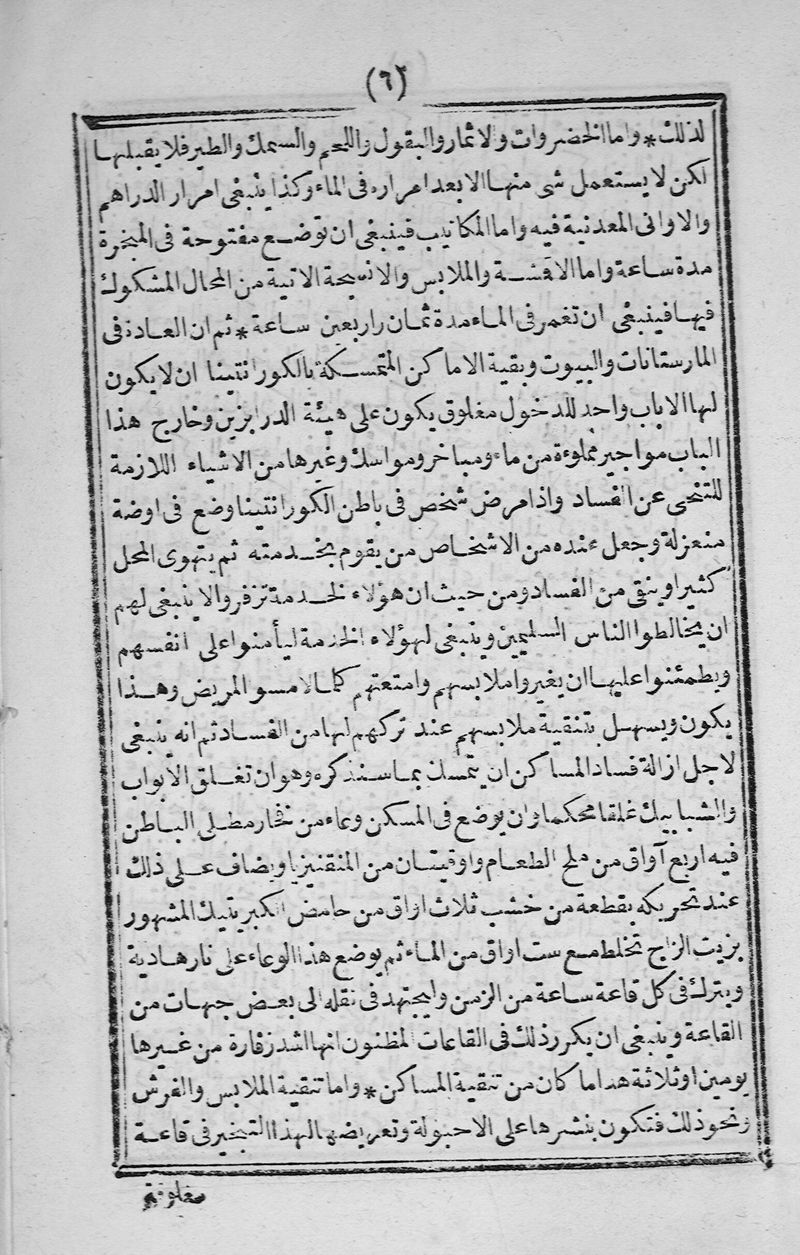 (٦٢)
لذلك * واما الخضروات والاثمار والبقول واللحم والسمك والطير فلا يقبلها
لكن لا يستعمل شى منها الا بعد امراره فى الماء وكذا ينبغى امرار الدراهم
والاوانى المعدنية فيه واما المكاتيب فينبغى ان توضع مفتوحة فى المبخرة
مدة ساعة واما الاقشة والملابس والانسجة الاتية من المحال المشكوك
فيها فينبغى ان تغمر فى الماء مدة ثمان واربعين ساعة * ثم ان العادة فى
المارستانات والبيوت وبقية الاماكن المتمسكة بالكورانتينا ان لا يكون
لها الا باب واحد للدخول مغلوق يكون على هيئة الدرابزين وخارج هذا
الباب مواجير مملوءة من ماء ومباخر ومواسك وغيرها من الاشياء اللازمة
للتنحى عن الفساد واذا مرض شخص فى باطن الكورانتينا وضع فى اوضة
منعزلة وجعل عنده من الاشخاص من يقوم بخدمته ثم يتهوى المحل
كثيرا وينقى من الفساد ومن حيث ان هؤلاء الخدمة تزفروا لا ينبغى لهم
ان يخالطوا الناس السليمين وينبغى لهؤلاء الخدمة ليأمنوا على انفسهم
ويطمئنوا عليها ان يغيروا ملابسهم وامتعتهم كلما لامسوا المريض وهذا
يكون ويسهل بتنقية ملابسهم عند تركهم لها من الفساد ثم انه ينبغى
لاجل ازالة فساد المساكن ان يتمسك بما سنذكره وهو ان تغلق الابواب
والشبابيك غلقا محكما وان يوضع فى المسكن وعاء من فخار مطلى الباطن
فيه اربع آواق من ملح الطعام واوقيتان من المنقنيزيا ويضاف على ذلك
عند تحريكه بقطعة من خشب ثلاث اواق من حامض الكبريتيك المشهور
بزيت الزاج تخلط مع ست اواق من الماء ثم يوضع هذا الوعاء على نار هادية
ويترك فى كل قاعة ساعة من الزمن ويجتهد فى نقله الى بعض جهات من
القاعة وينبغى ان يكرر ذلك فى القاعات المظنون انها اشد زفارة من غيرها
يومين او ثلاثة هذا ما كان من تنقية المساكن * واما تنقية الملابس والفرش
ونحو ذلك فتكون بنشرها على الاحبولة وتعريضها لهذا التبخير فى قاعة
مغلوقة